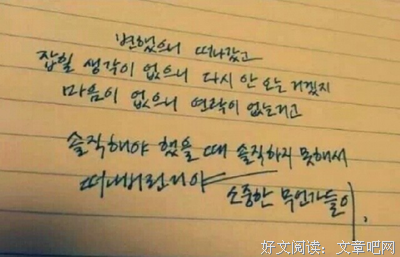 변했으니 떠나갔고
잡힐 생각이 없으니 다시 안 오는 거겠지
마음이 없으니 연락이 없는거고
솔직해야 했을 때 솔직하지 못해서
떠내버린거야
소중한 무언가들이.
好文阅读: 文章吧网